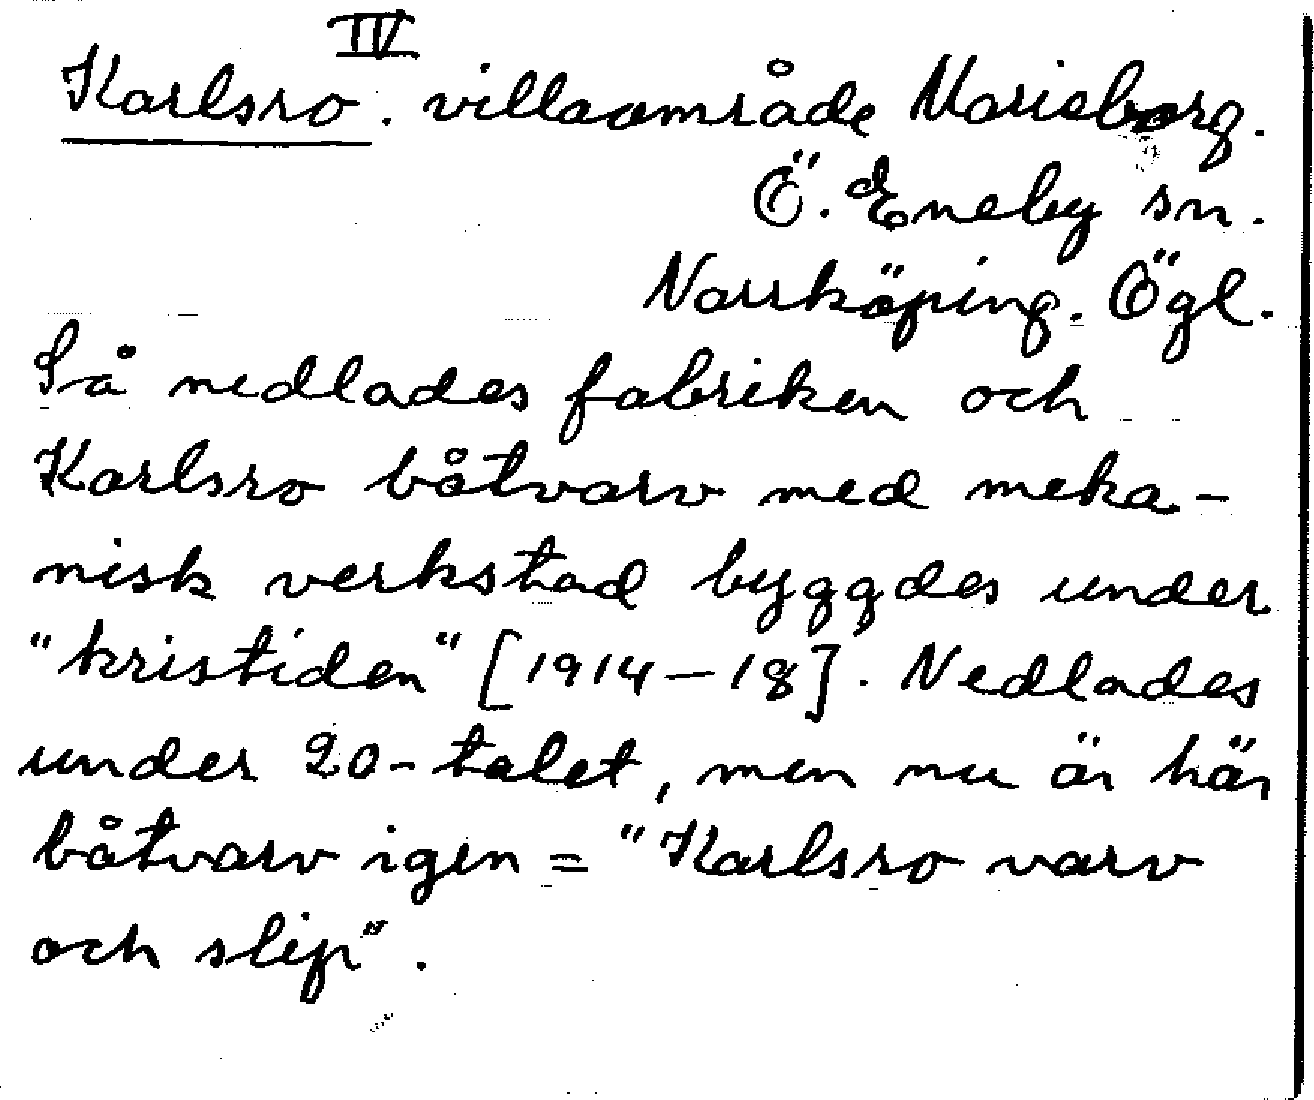 IV
Karlsro. villaområde Marieborg.
Ö. Eneby sn.
Norrköping. Ögl.
Så nedlades fabriken och
Karlsro båtvarv med meka-
nisk verkstad byggdes under
"kristiden" [1914-18]. Nedlades
under 20-talet, men nu är här
båtvarv igen = "Karlsro varv
och slip".